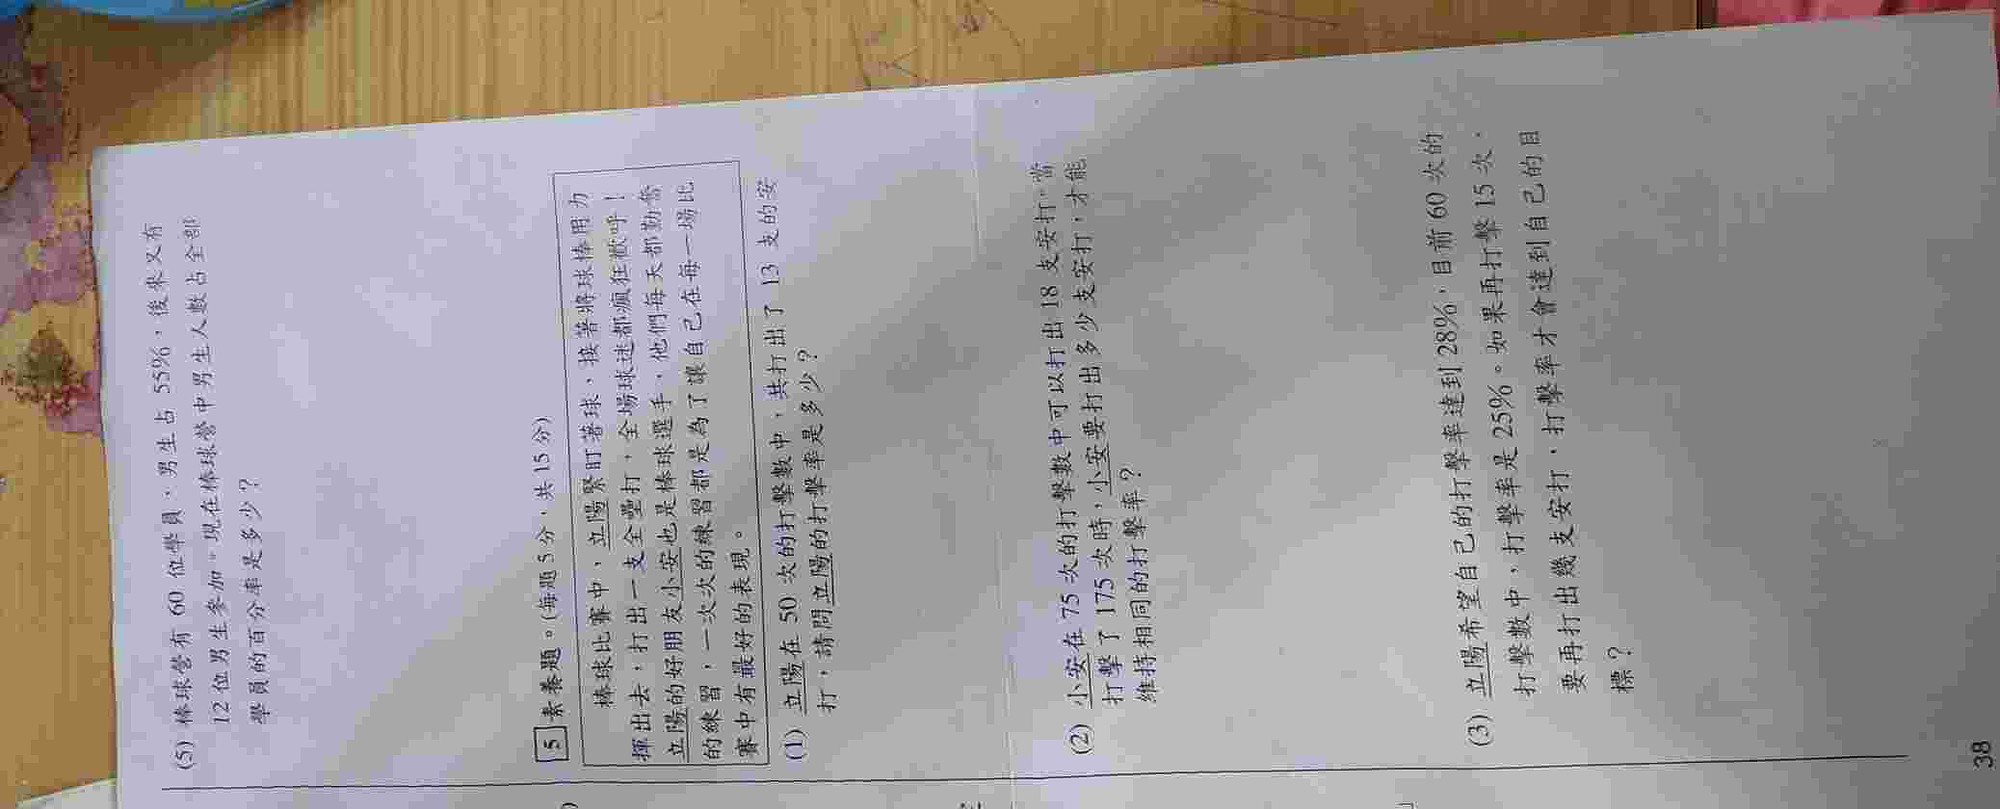 (5) 棒球營有 60 位學員，男生占 55%，後來又有
12 位男生參加。現在棒球營中男生人數占全部
學員的百分率是多少？
5 素養題。(每題 5 分，共 15 分)
棒球比賽中，立陽緊盯著球，接著將球棒用力
揮出去，打出一支全壘打，全場球迷都瘋狂歡呼！
立陽的好朋友小安也是棒球選手，他們每天都勤奮
的練習，一次次的練習都是為了讓自己在每一場比
賽中有最好的表現。
(1) 立陽在 50 次的打擊數中，共打出了 13 支的安
打，請問立陽的打擊率是多少？
(2) 小安在 75 次的打擊數中可以打出 18 支安打。當
打擊了 175 次時，小安要打出多少支安打，才能
維持相同的打擊率？
(3) 立陽希望自己的打擊率達到 28%，目前 60 次的
打擊數中，打擊率是 25%。如果再打擊 15 次，
要再打出幾支安打，打擊率才會達到自己的目
標？
38